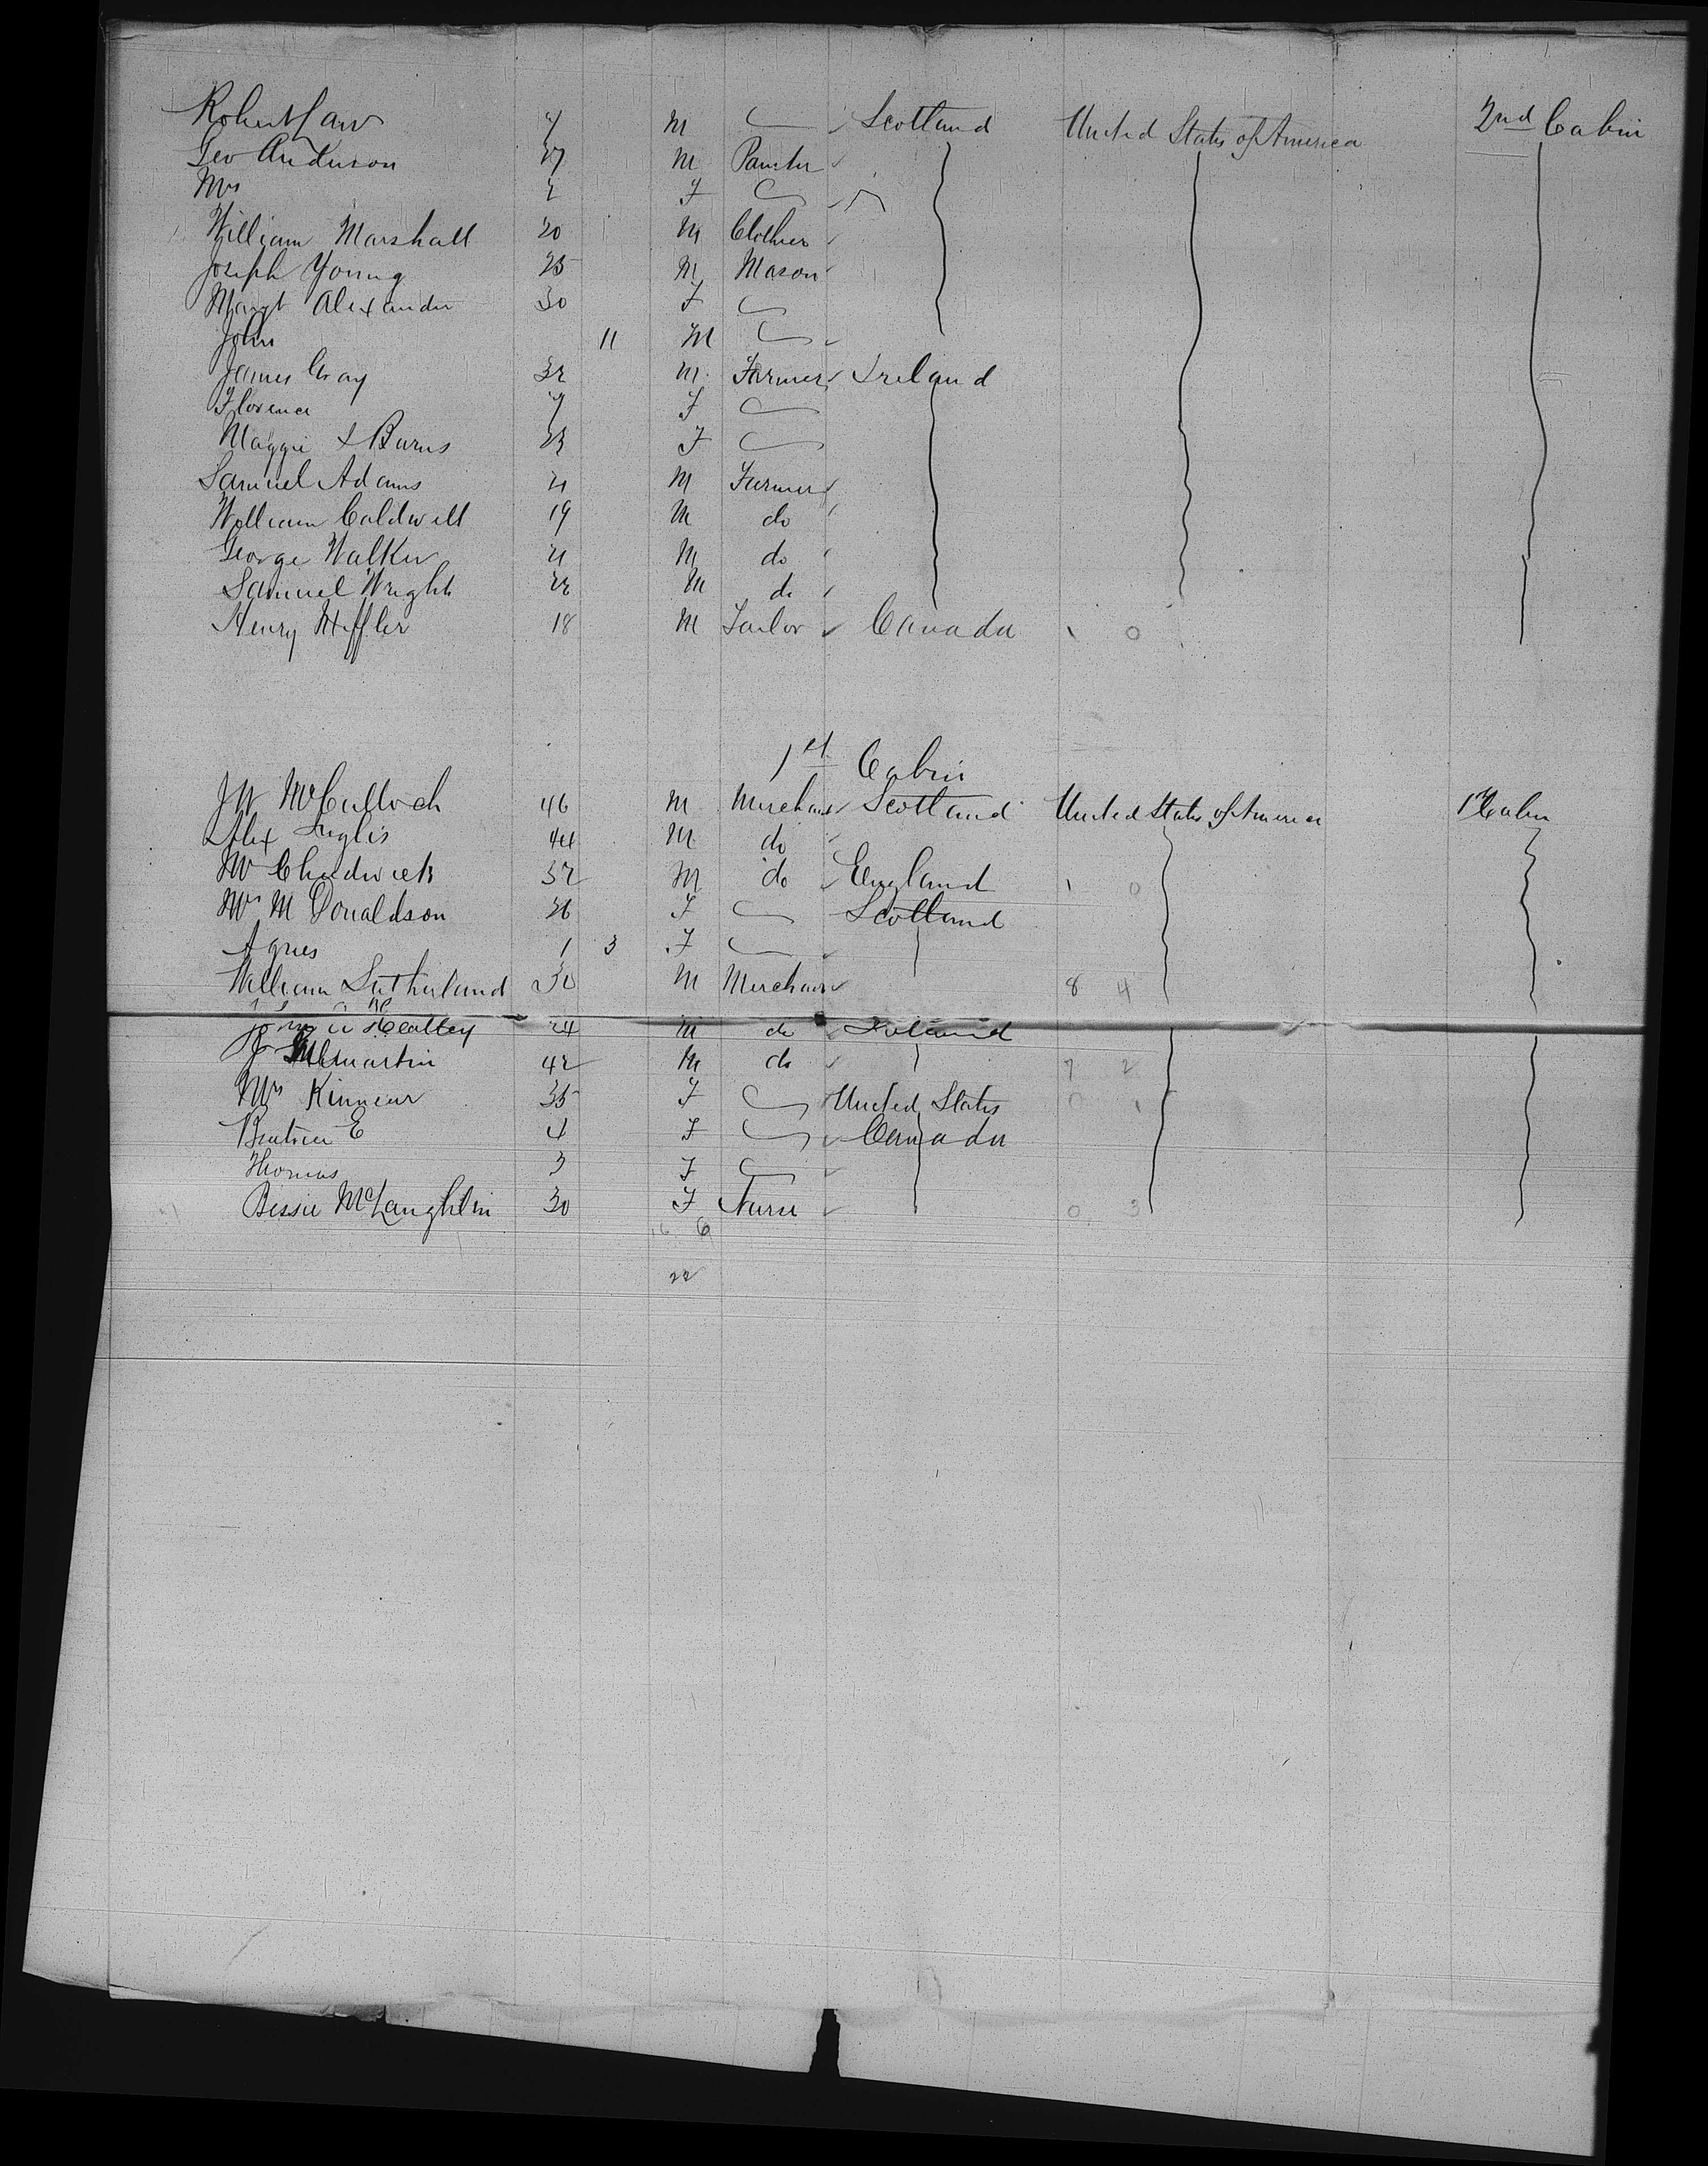 Robert Law 7 M Scotland United States of America 2nd Cabin
Geo Anderson 27 M Painter
Mrs 2 F
William Marshall 20 M Clothier
Joseph Young 25 M Mason
Margt Alexander 30 F
John 11 M
James Gray 32 M Farmer Ireland
Florence 7 F
Maggie Burns 23 F
Samuel Adams 21 M Farmer
William Caldwell 19 M do
George Walker 21 M do
Samuel Wright 22 M do
Henry 18 M Tailor Canada 1 0
1st Cabin
J W McCulloch 46 M Merchant Scotland United States of America 1st Cabin
Alex Inglis 44 M do
W Chadwick 32 M do England 1 0
Mrs M Donaldson 26 F Scotland
Agnes 1 3 F
William Sutherland 30 M Merchant 8 4
24 M do Ireland
42 M do 7 2
Mrs Kinnear 35 F United States 0 1
Beatrice E 4 F Canada
Thomas 3 F
Bessie McLaughlin 30 F Nurse 0 3
16 6
22